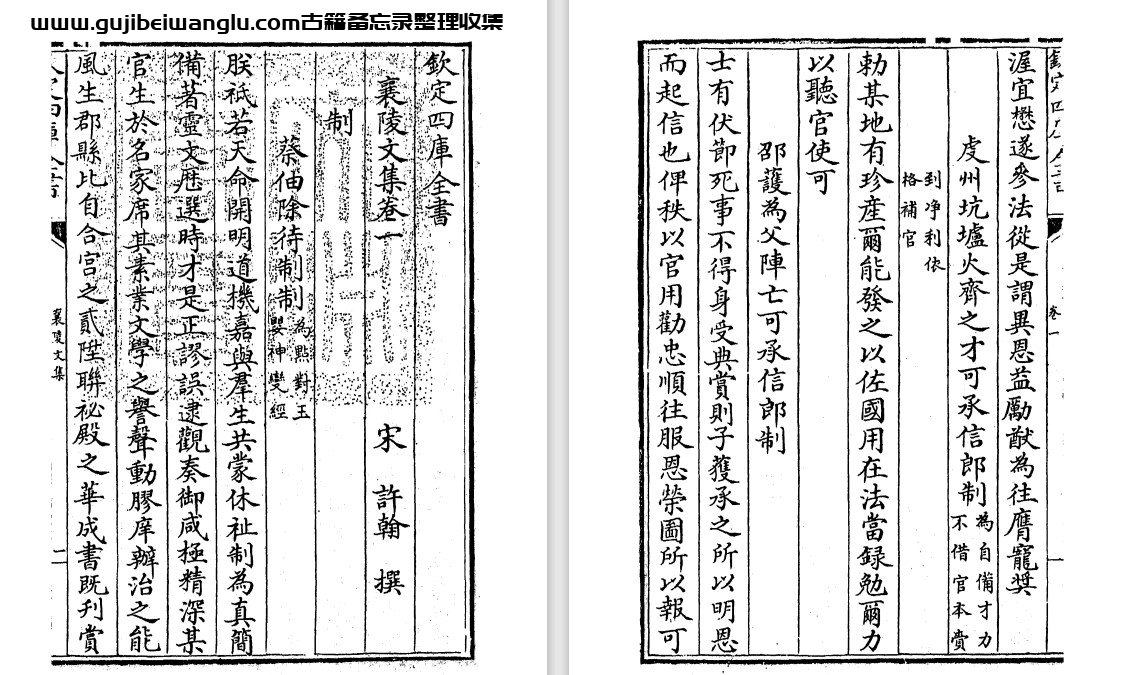 www.gujibeiwanglu.com古籍备忘录整理收集
欽定四庫全書
襄陵文集卷一
宋 許翰 撰
制
蔡伷除待制制為點對玉
嬰神變經
朕祇若天命開明道機嘉與羣生共蒙休祉制為真簡
備著靈文歷選時才是正謬誤逮觀奏御咸極精深某
官生於名家席其素業文學之譽聲動膠庠辦治之能
風生郡縣比自合宮之貳陞聯祕殿之華成書既刋賞
襄陵文集
一
渥宜懋遂參法從是謂異恩益勵猷為往膺寵奬
虔州坑壚火齊之才可承信郎制為自備才力
不借官本賣
到净利依
格補官
勅某地有珍産爾能發之以佐國用在法當録勉爾力
以聽官使可
邵䕶為父陣亡可承信郎制
士有伏節死事不得身受典賞則子獲承之所以明恩
而起信也俾秩以官用勸忠順往服恩榮圖所以報可
卷一